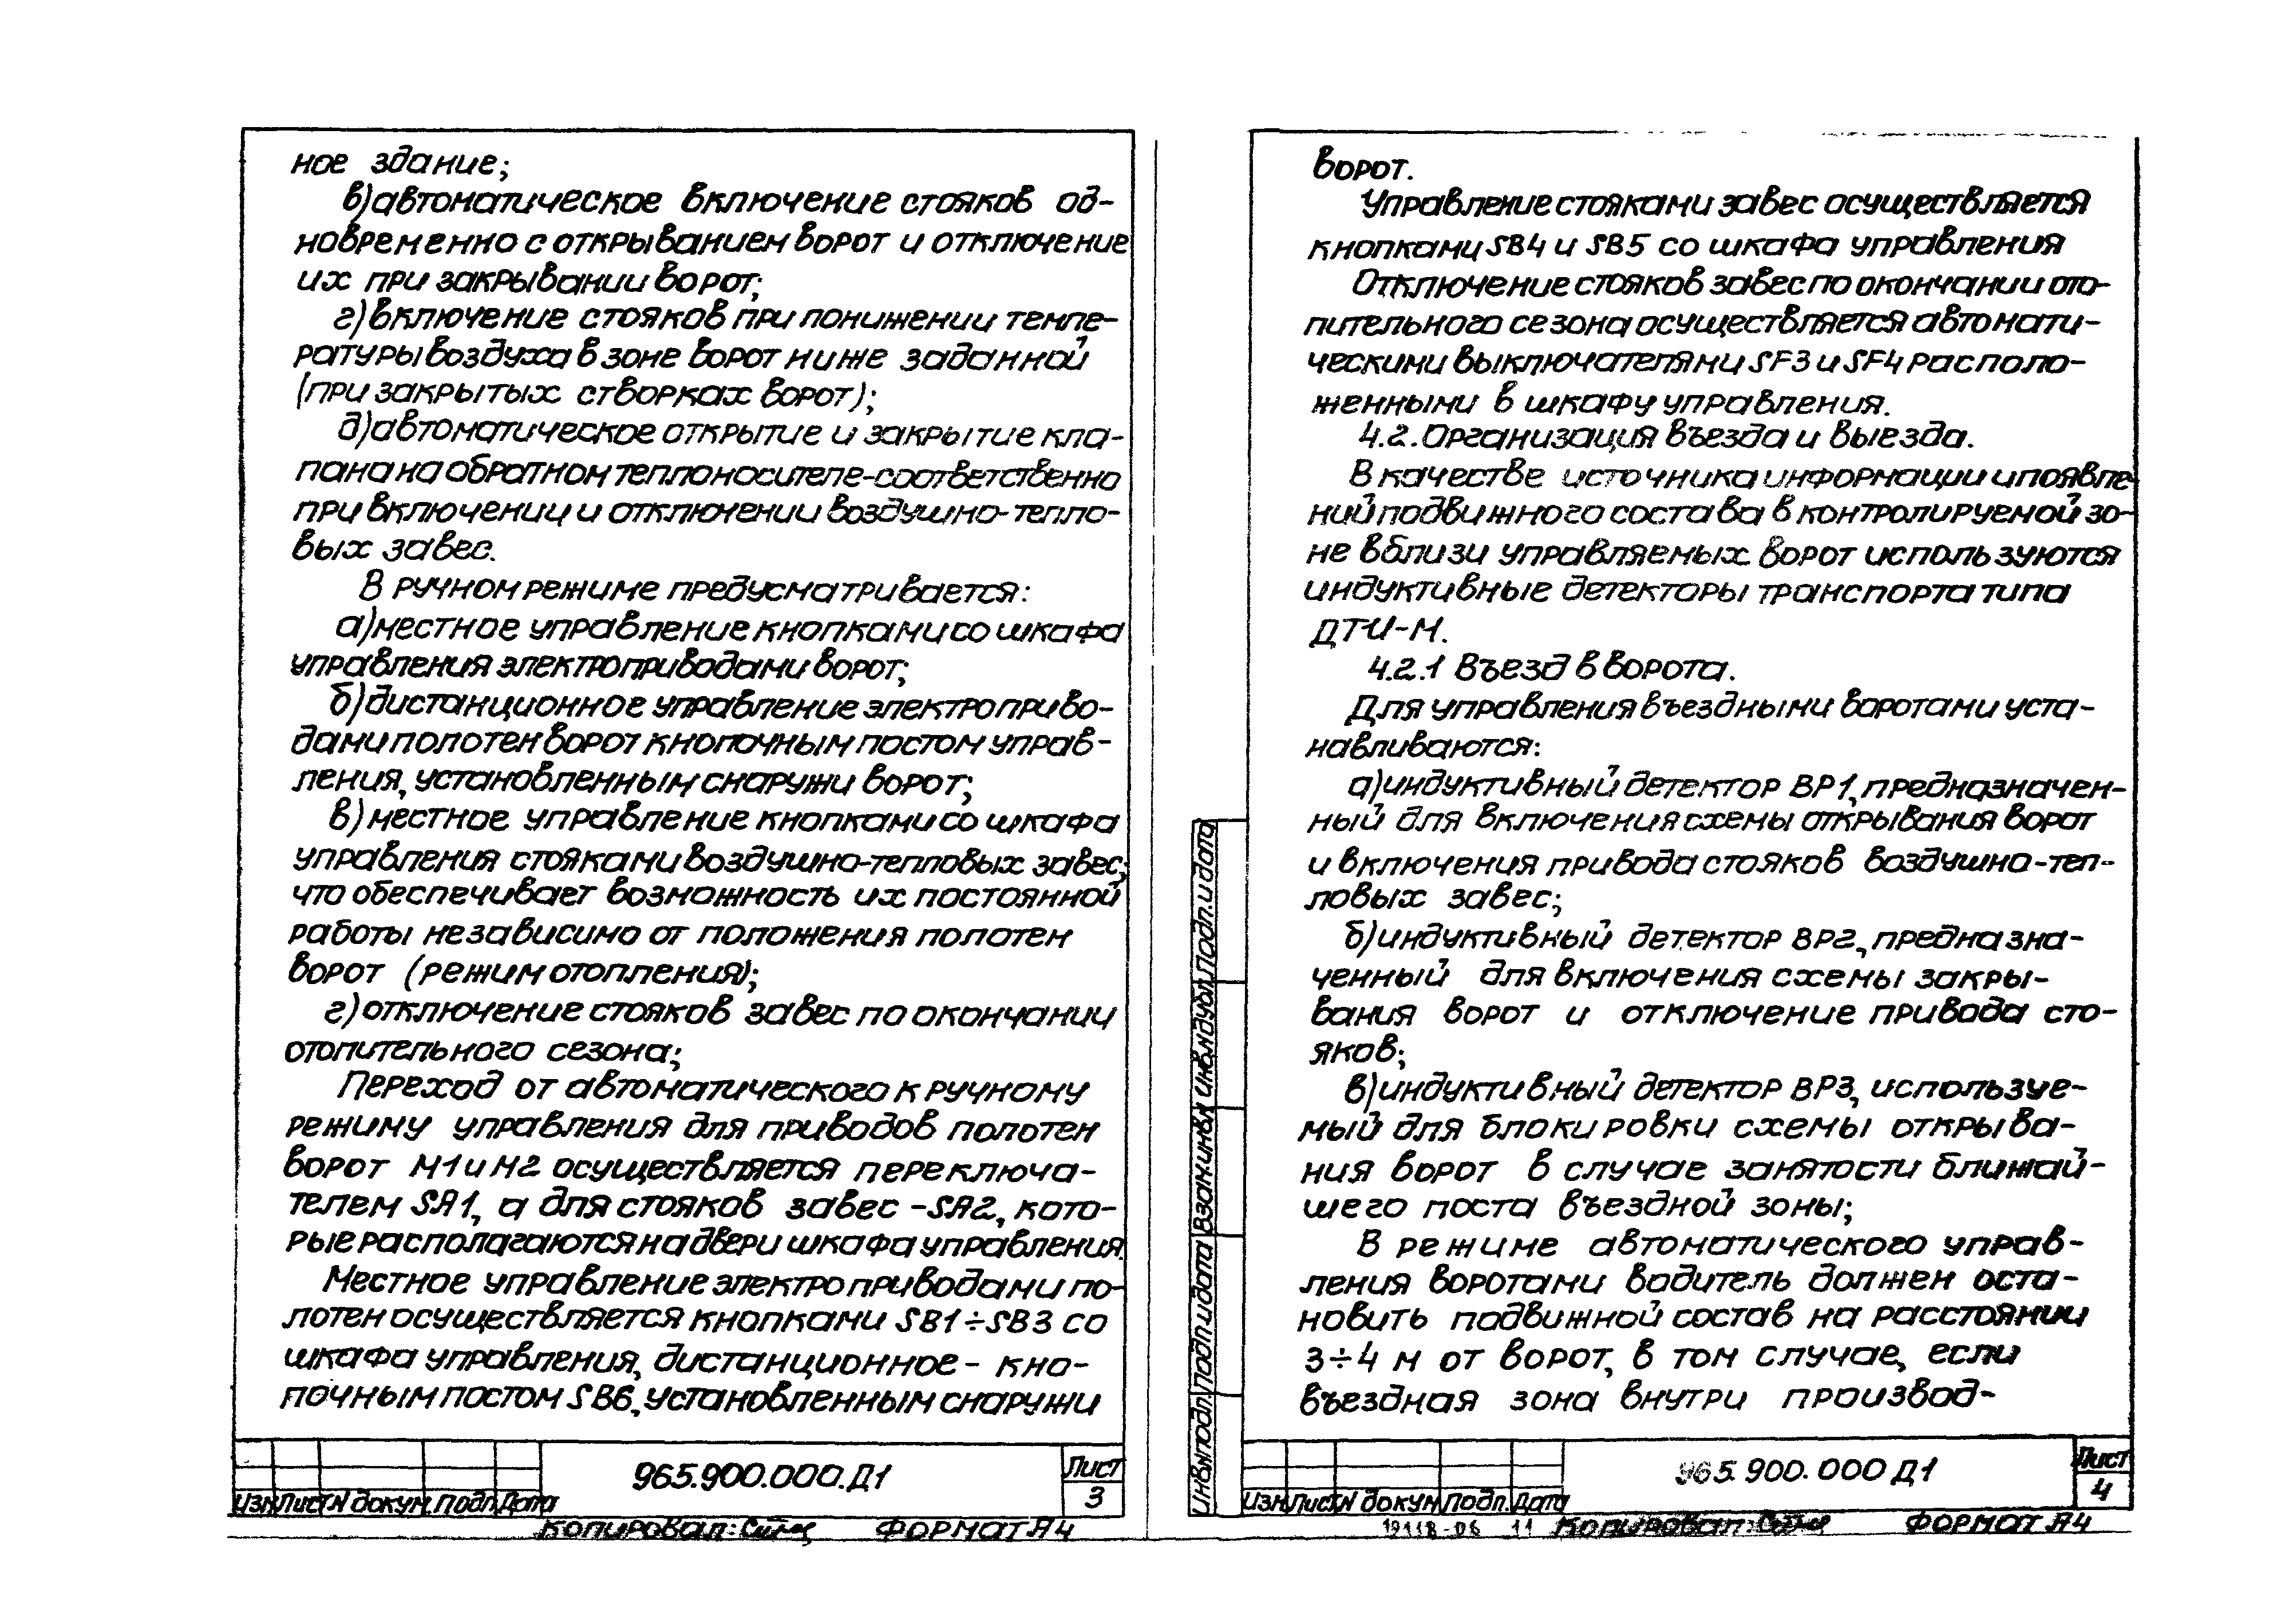 ное здание;
в) автоматическое включение стояков од-
новременно с открыванием ворот и отключение
их при закрывании ворот;
г) включение стояков при понижении темпе-
ратуры воздуха в зоне ворот ниже заданной
(при закрытых створках ворот);
д) автоматическое открытие и закрытие кла-
пана на обратном теплоносителе-соответственно
при включении и отключении воздушно-тепло-
вых завес.
В ручном режиме предусматривается:
а) местное управление кнопками со шкафа
управления электроприводами ворот;
б) дистанционное управление электроприво-
дами полотен ворот кнопочным постом управ-
ления, установленным снаружи ворот;
в) местное управление кнопками со шкафа
управления стояками воздушно-тепловых завес,
что обеспечивает возможность их постоянной
работы независимо от положения полотен
ворот (режим отопления);
г) отключение стояков завес по окончании
отопительного сезона;
Переход от автоматического к ручному
режиму управления для приводов полотен
ворот М1 и М2 осуществляется переключа-
телем SA1, а для стояков завес -SA2, кото-
рые располагаются на двери шкафа управления.
Местное управление электроприводами по-
лотен осуществляется кнопками SB1÷SB3 со
шкафа управления, дистанционное- кно-
почным постом SB6, установленным снаружи
965.900.000.Д1
Лист
3
Изм. Лист N докум. Подп. Дата
Копировал:
ФОРМАТ А4
ворот.
Управление стояками завес осуществляется
кнопками SB4 и SB5 со шкафа управления
Отключение стояков завес по окончании ото-
пительного сезона осуществляется автомати-
ческими выключателями SF3 и SF4 располо-
женными в шкафу управления.
4.2. Организация въезда и выезда.
В качестве источника информации и появле-
ний подвижного состава в контролируемой зо-
не вблизи управляемых ворот используются
индуктивные детекторы транспорта типа
ДТИ-М.
4.2.1 Въезд в ворота.
Для управления въездными воротами уста-
навливаются:
а) индуктивный детектор ВР1, предназначен-
ный для включения схемы открывания ворот
и включения привода стояков воздушно-теп-
ловых завес;
б) индуктивный детектор ВР2, предназна-
ченный для включения схемы закры-
вания ворот и отключение привода сто-
яков;
в) индуктивный детектор ВР3, используе-
мый для блокировки схемы открыва-
ния ворот в случае занятости ближай-
шего поста въездной зоны;
В режиме автоматического управ-
ления воротами водитель должен оста-
новить подвижной состав на расстоянии
3÷4 м от ворот, в том случае, если
въездная зона внутри производ-
Инв.N подл. Подп. и дата Взам.инв.N Инв.N дубл. Подп. и дата
965.900.000 Д1
Лист
4
Изм. Лист N докум. Подп. Дата
19118-06 11 Копировал:
ФОРМАТ А4